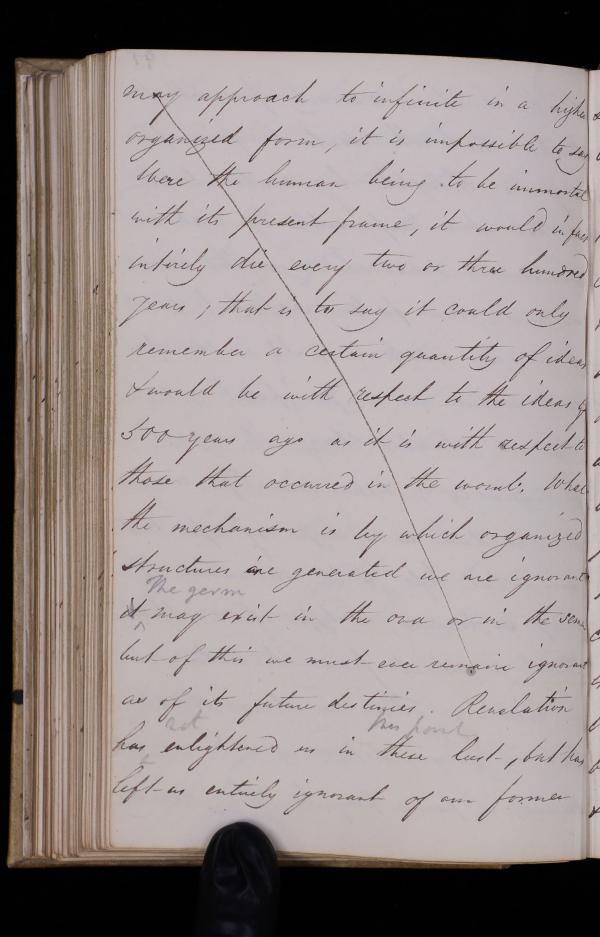 may approach to infinite in a higher
organized form, it is impossible to say
Were the human being to be immortal
with its present frame, it would in fact
intirely die every two or three hundred
years; that is to say it could only
remember a certain quantity of ideas
& would be with respect to the ideas of
500 years ago as it is with respect to
those that occurred in the womb. What
the mechanism is by which organized
structures are generated we are ignorant
The germ
it may exist in the ova or in the
but of this we must ever remain ignorant
as of its future destinies. Revelation
not this point
has enlightened us in these last, but has
left us entirely ignorant of our former